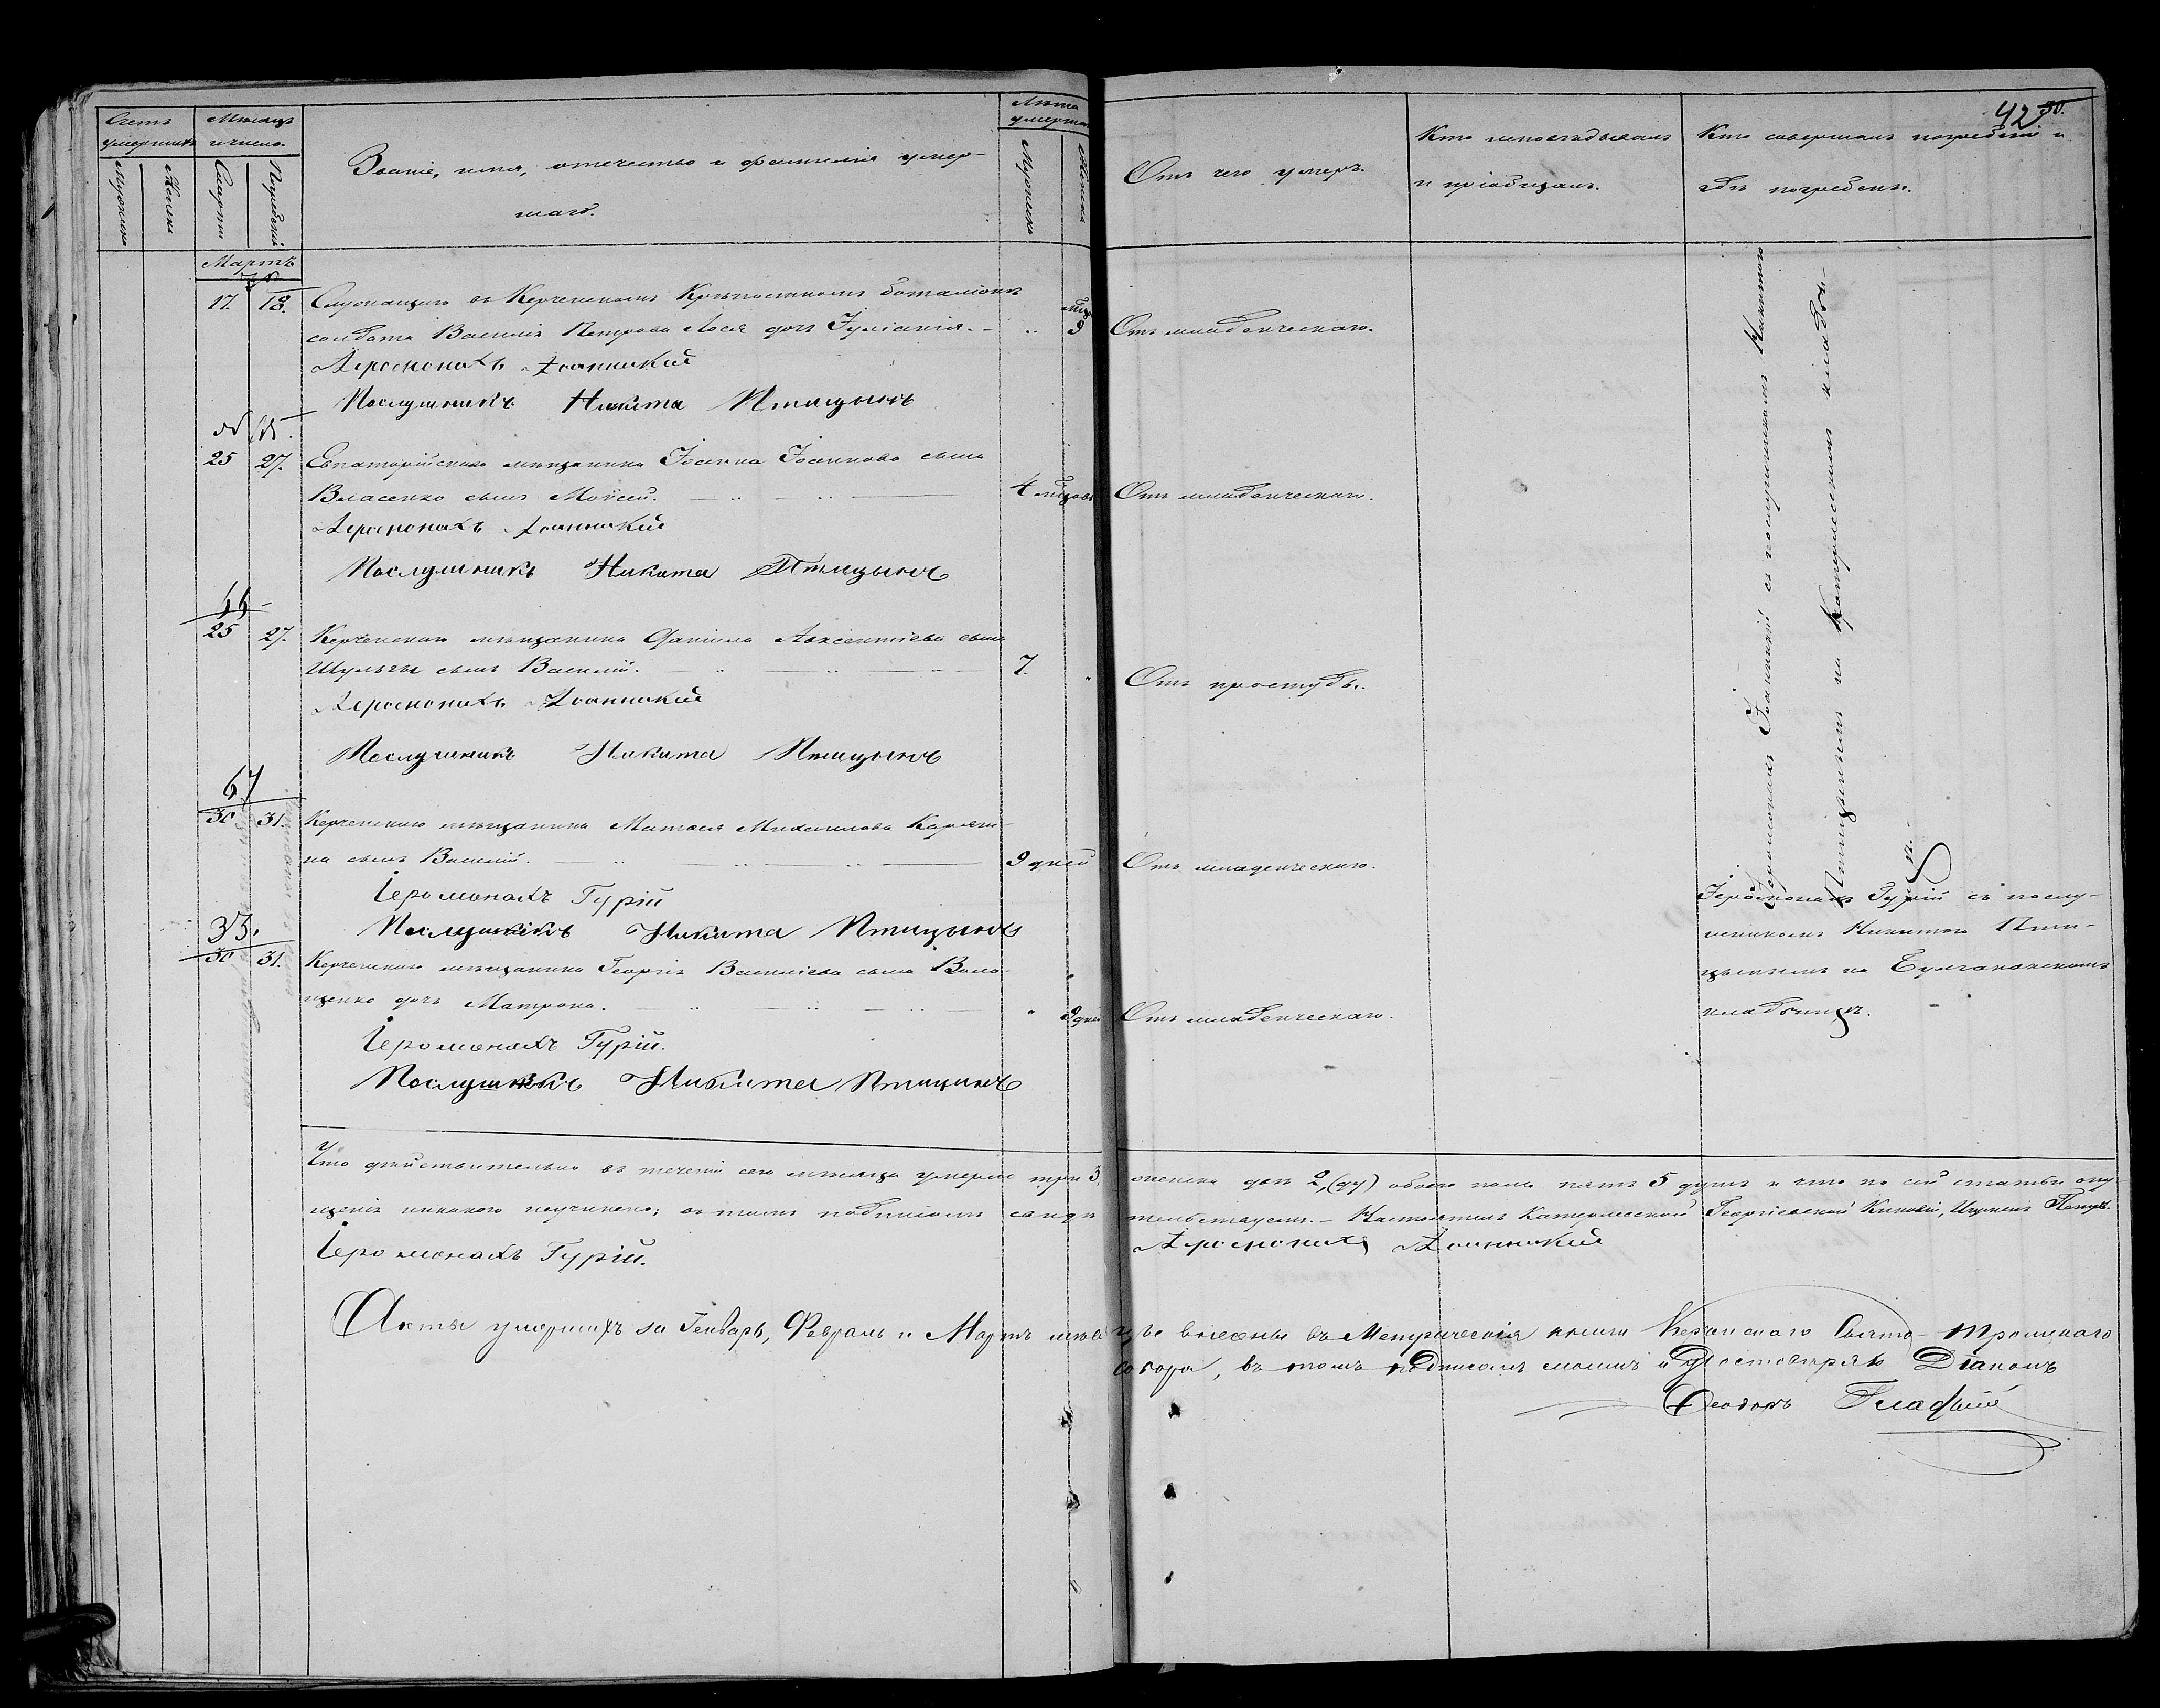 42 30.
Счетъ умершихъ
Мужеска
Женска
Мѣсяцъ и число.
Смерти
Погребенія
Званіе, имя, отчество и фамилія умер-
шаго.
Лѣта умершаго
Мужеска
Женска
Отъ чего умеръ.
Кто исповѣдывалъ
и пріобщалъ.
Кто совершалъ погребеніе и
гдѣ погребенъ.
Мартъ
17. 18. Служащаго въ Керченскомъ Крѣпостномъ баталіонѣ
солдата Василія Петрова Лося дочь Іуліанія. 9 Отъ младенческаго.
Іеромонахъ Іоанникій
Послушникъ Никита Птицынъ
25 27. Евпаторійскаго мѣщанина Іоанна Іоаннова сына
Власенко сынъ Моѵсей. 4 мѣсяцовъ Отъ младенческаго.
Іеромонахъ Іоанникій
Послушникъ Никита Птицынъ
66
25 27. Керченскаго мѣщанина Даніила Авксентіева сына
Шульги сынъ Василій. 7. Отъ простуды.
Іеромонахъ Іоанникій
Послушникъ Никита Птицынъ
Іеромонахъ Іоанникій съ послушникомъ Никитою
Птицынымъ на Катерлесскомъ кладби-
щѣ.
67
30 31. Керченскаго мѣщанина Матвея Михаилова
на сынъ Василій. 9 дней Отъ младенческаго.
Іеромонахъ Гурій
Послушникъ Никита Птицынъ
Іеромонахъ Гурій съ послу-
шникомъ Никитою Пти-
цынымъ на Булганакскомъ
кладбищѣ.
33.
30 31. Керченскаго мѣщанина Георгія Василіева сына Воло-
щенко дочь Матрона. 9 дней Отъ младенческаго.
Іеромонахъ Гурій.
Послушникъ Никита Птицынъ
Что дѣйствительно въ теченіи сего мѣсяца умерло три 3, женска двѣ 2, (ду) обоего пола пять 5 душъ и что по сей статьи опу-
щенія никакого неучинено; въ томъ подписомъ свидѣтельствуемъ. – Настоятель Катерлесской Георгіевской Киновіи, Игуменъ
Іеромонахъ Гурій. Іеромонахъ Іоанникій
Акты умершихъ за Генварь, Февраль и Мартъ мѣсяцъ внесены въ Метрическія книги Керченскаго Свято-Троицкаго
собора, въ томъ подписомъ моимъ удостовѣряю Діаконъ
Ѳеодоръ